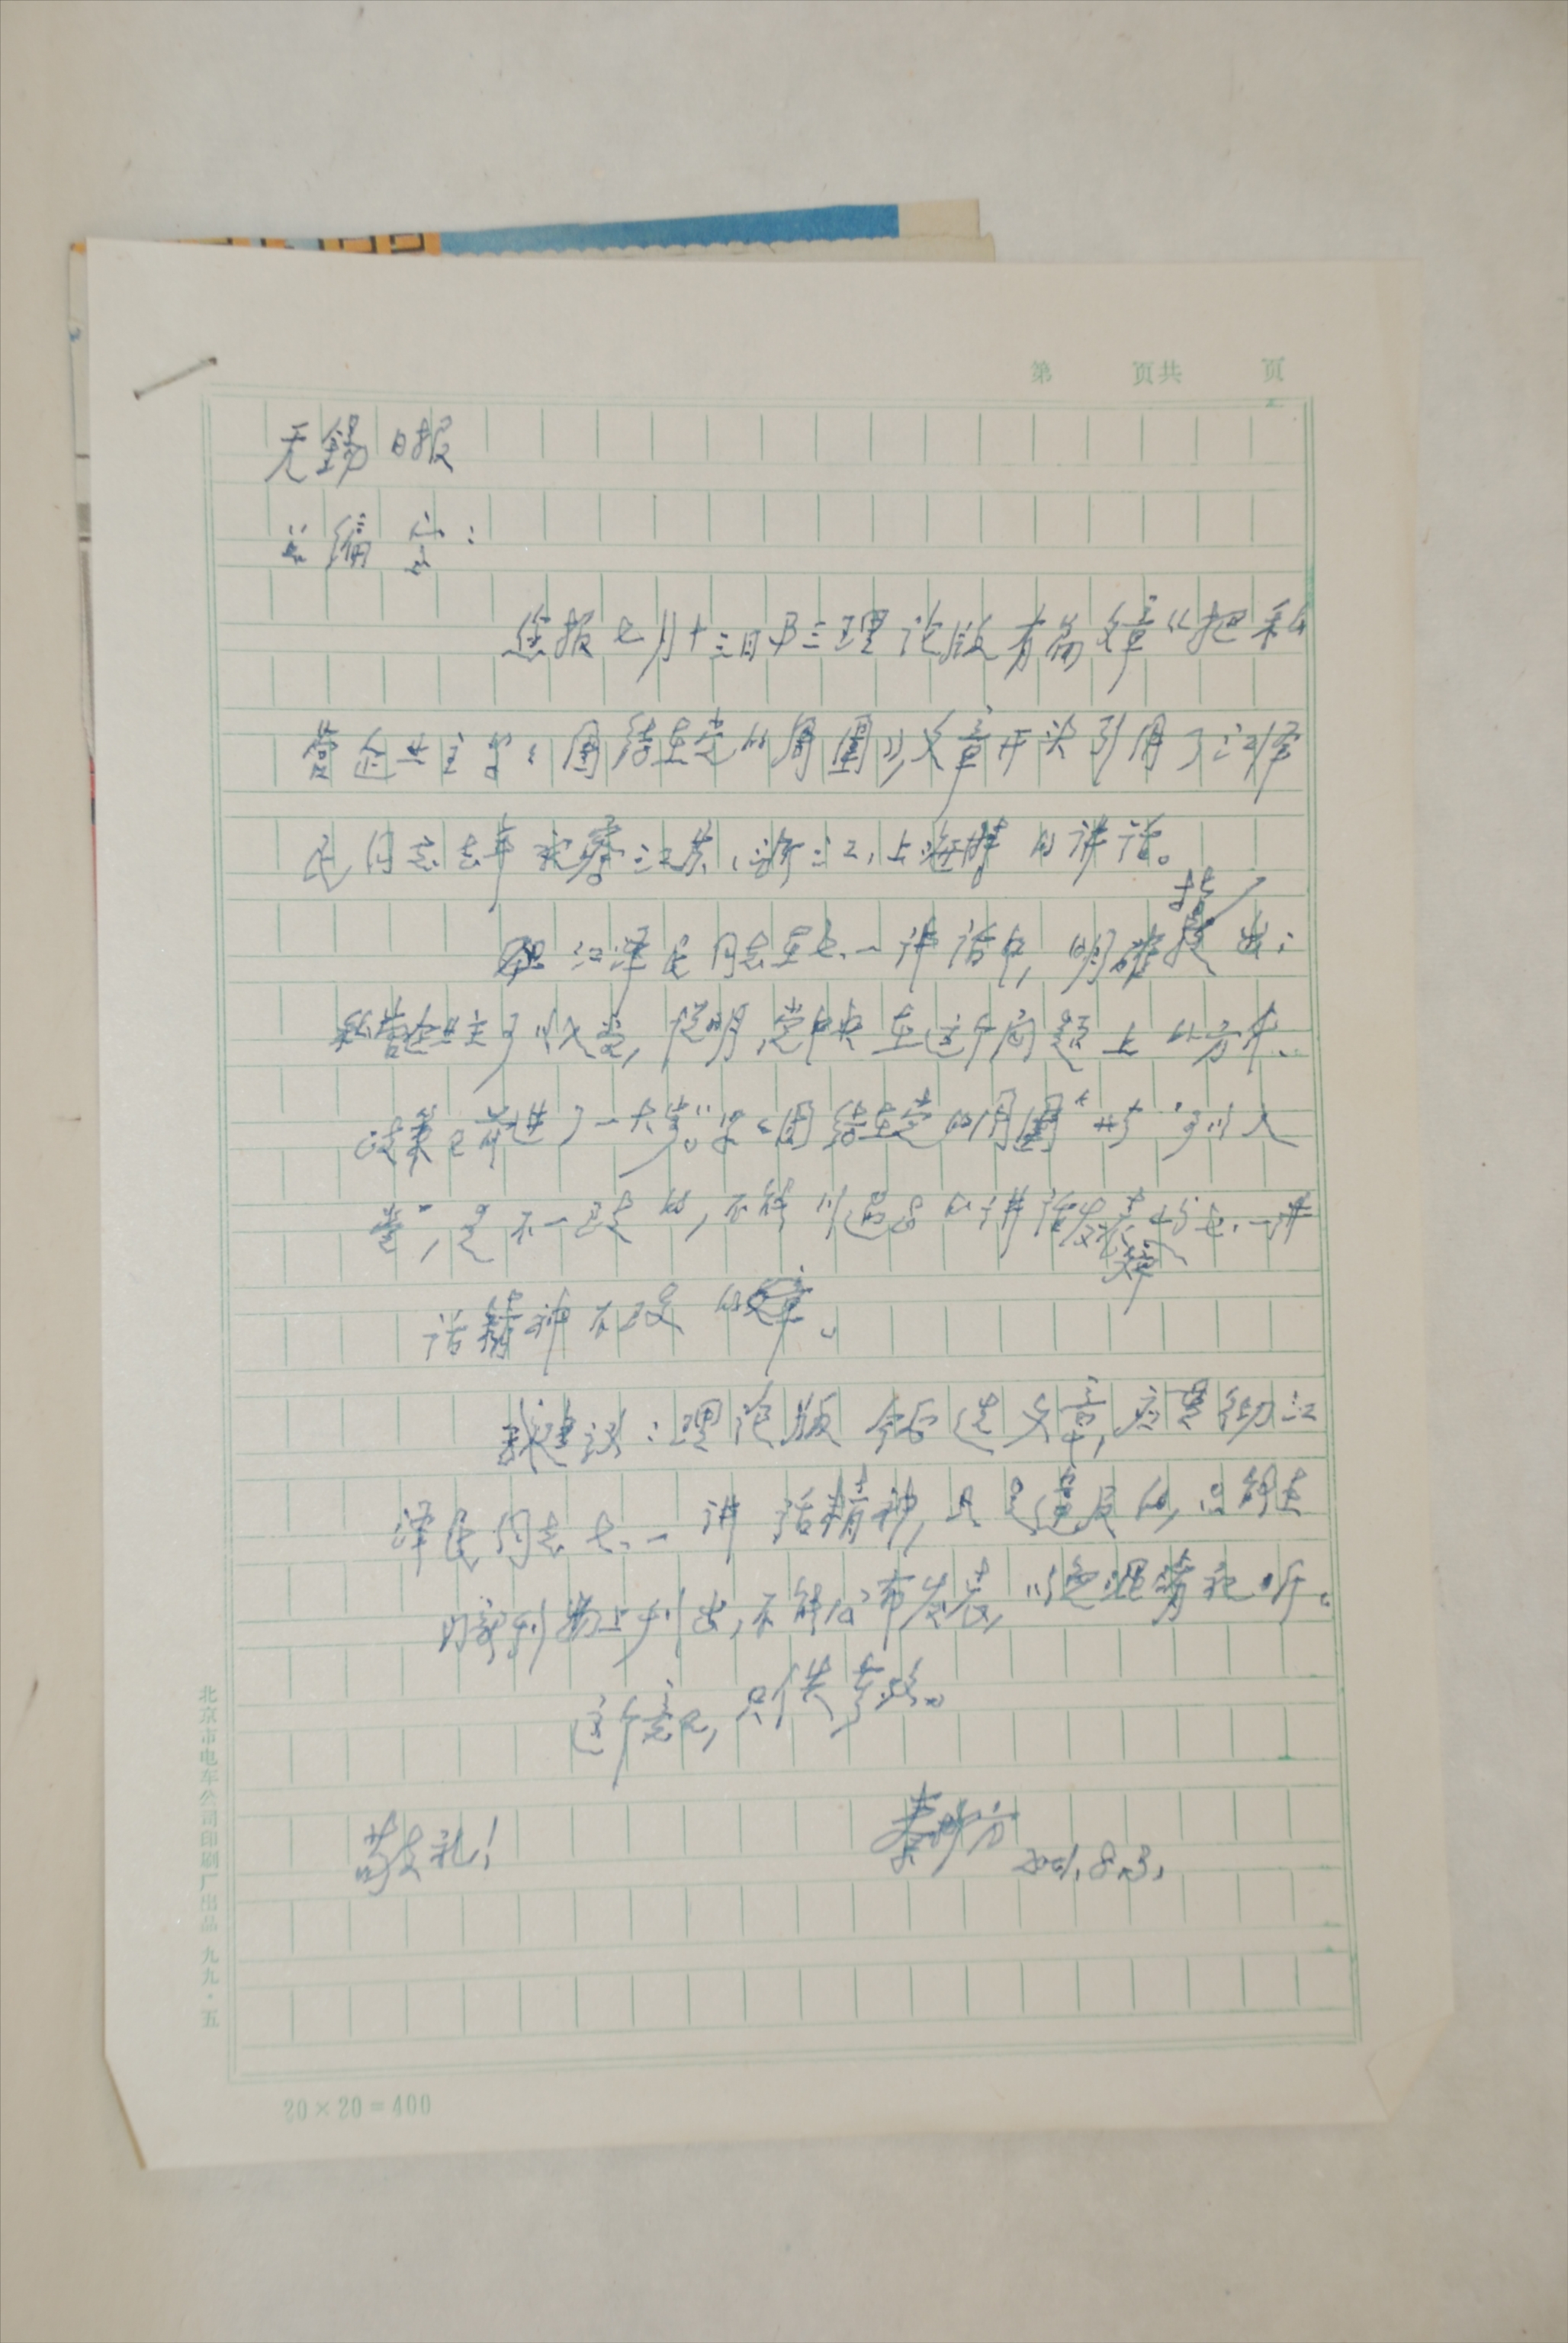 第 页共 页
无锡日报
总编室：
您报七月十三日B三理论版有篇文章《把私
营企业主紧紧团结在党的周围》，文章开头引用了江泽
民同志去年视察江苏、浙江、上海时的讲话。
江泽民同志在七.一讲话中，明确指出：
私营企业主可以入党，说明党中央在这个问题上的方针、
政策已前进了一大步。"紧紧团结在党的周围"与"可以入
党"，是不一致的，不能以过去的讲话发表与七.一讲
话精神不一致的文章。
我建议：理论版今后选文章，应贯彻江
泽民同志七.一讲话精神，凡是违反的，只能在
内部刊物上刊出，不能公布发表，以免混淆视听。
这个意见，只供参考。
敬礼！
秦柳方
2001.8.3.
北京市电车公司印刷厂出品 九九·五
20×20=400